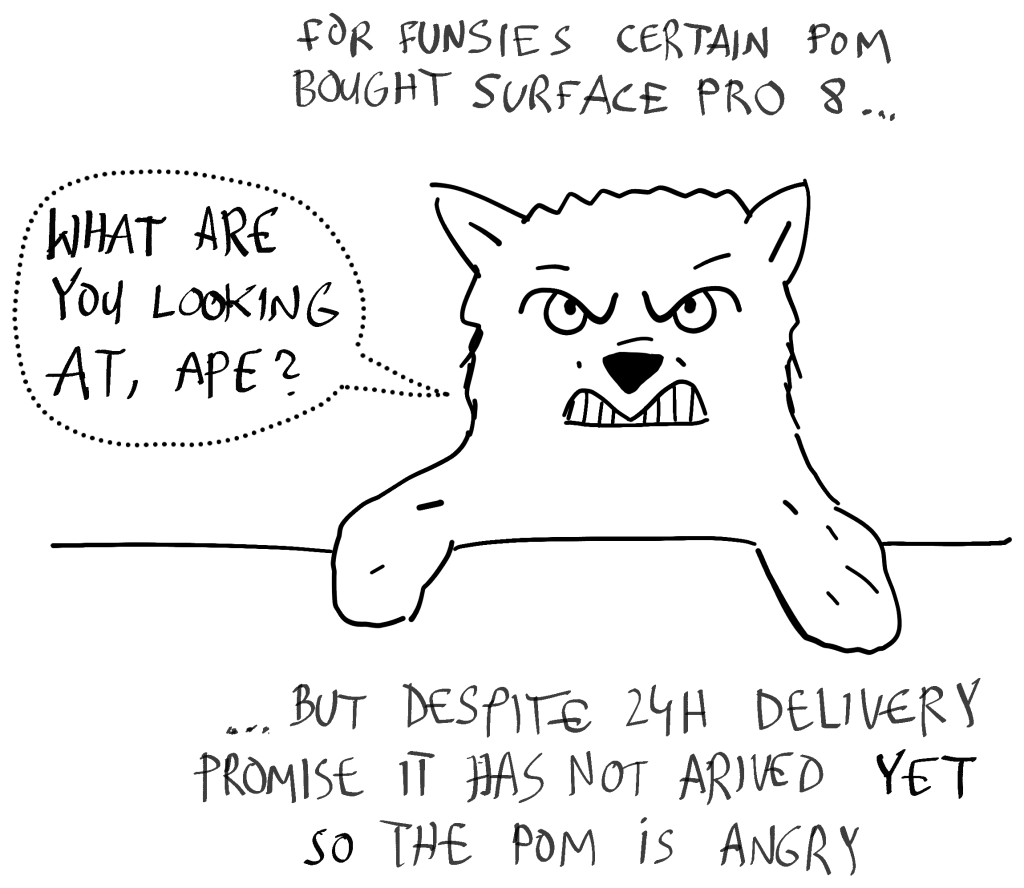 FOR FUNSIES CERTAIN POM
BOUGHT SURFACE PRO 8...
WHAT ARE
YOU LOOKING
AT, APE?
...BUT DESPITE 24H DELIVERY
PROMISE IT HAS NOT ARIVED YET
SO THE POM IS ANGRY